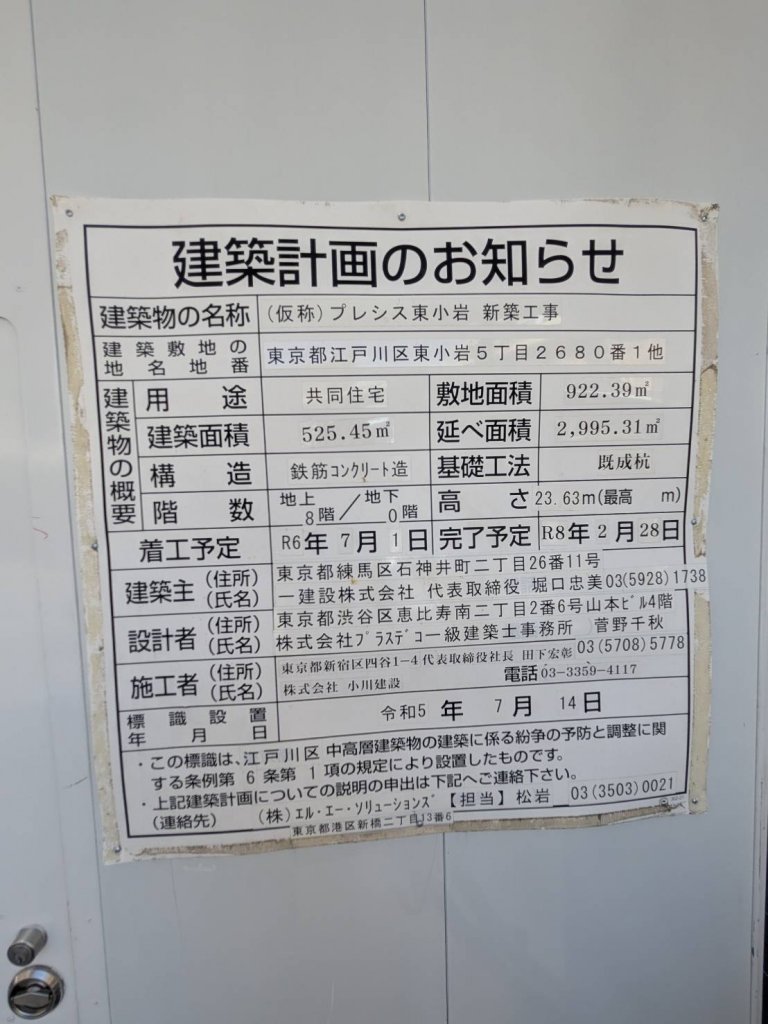 建築計画のお知らせ
建築物の名称 (仮称)プレシス東小岩 新築工事
建築敷地の地名地番 東京都江戸川区東小岩5丁目2680番1他
建築物の概要
用途 共同住宅 敷地面積 922.39㎡
建築面積 525.45㎡ 延べ面積 2,995.31㎡
構造 鉄筋コンクリート造 基礎工法 既成杭
階数 地上8階/地下0階 高さ 23.63m(最高 m)
着工予定 R6年 7月 1日 完了予定 R8年 2月 28日
建築主 (住所) 東京都練馬区石神井町二丁目26番11号
(氏名) 一建設株式会社 代表取締役 堀口忠美 03(5928)1738
設計者 (住所) 東京都渋谷区恵比寿南二丁目2番6号山本ビル4階
(氏名) 株式会社プラスデコ一級建築士事務所 菅野千秋 03(5708)5778
施工者 (住所) 東京都新宿区四谷1-4 代表取締役社長 田下宏彰
(氏名) 株式会社 小川建設 電話 03-3359-4117
標識設置年月日 令和5 年 7 月 14 日
・この標識は、江戸川区 中高層建築物の建築に係る紛争の予防と調整に関
する条例第 6 条第 1 項の規定により設置したものです。
・上記建築計画についての説明の申出は下記へご連絡下さい。
(連絡先) (株)エル・エー・ソリューションズ 【担当】松岩 03(3503)0021
東京都港区新橋二丁目13番6